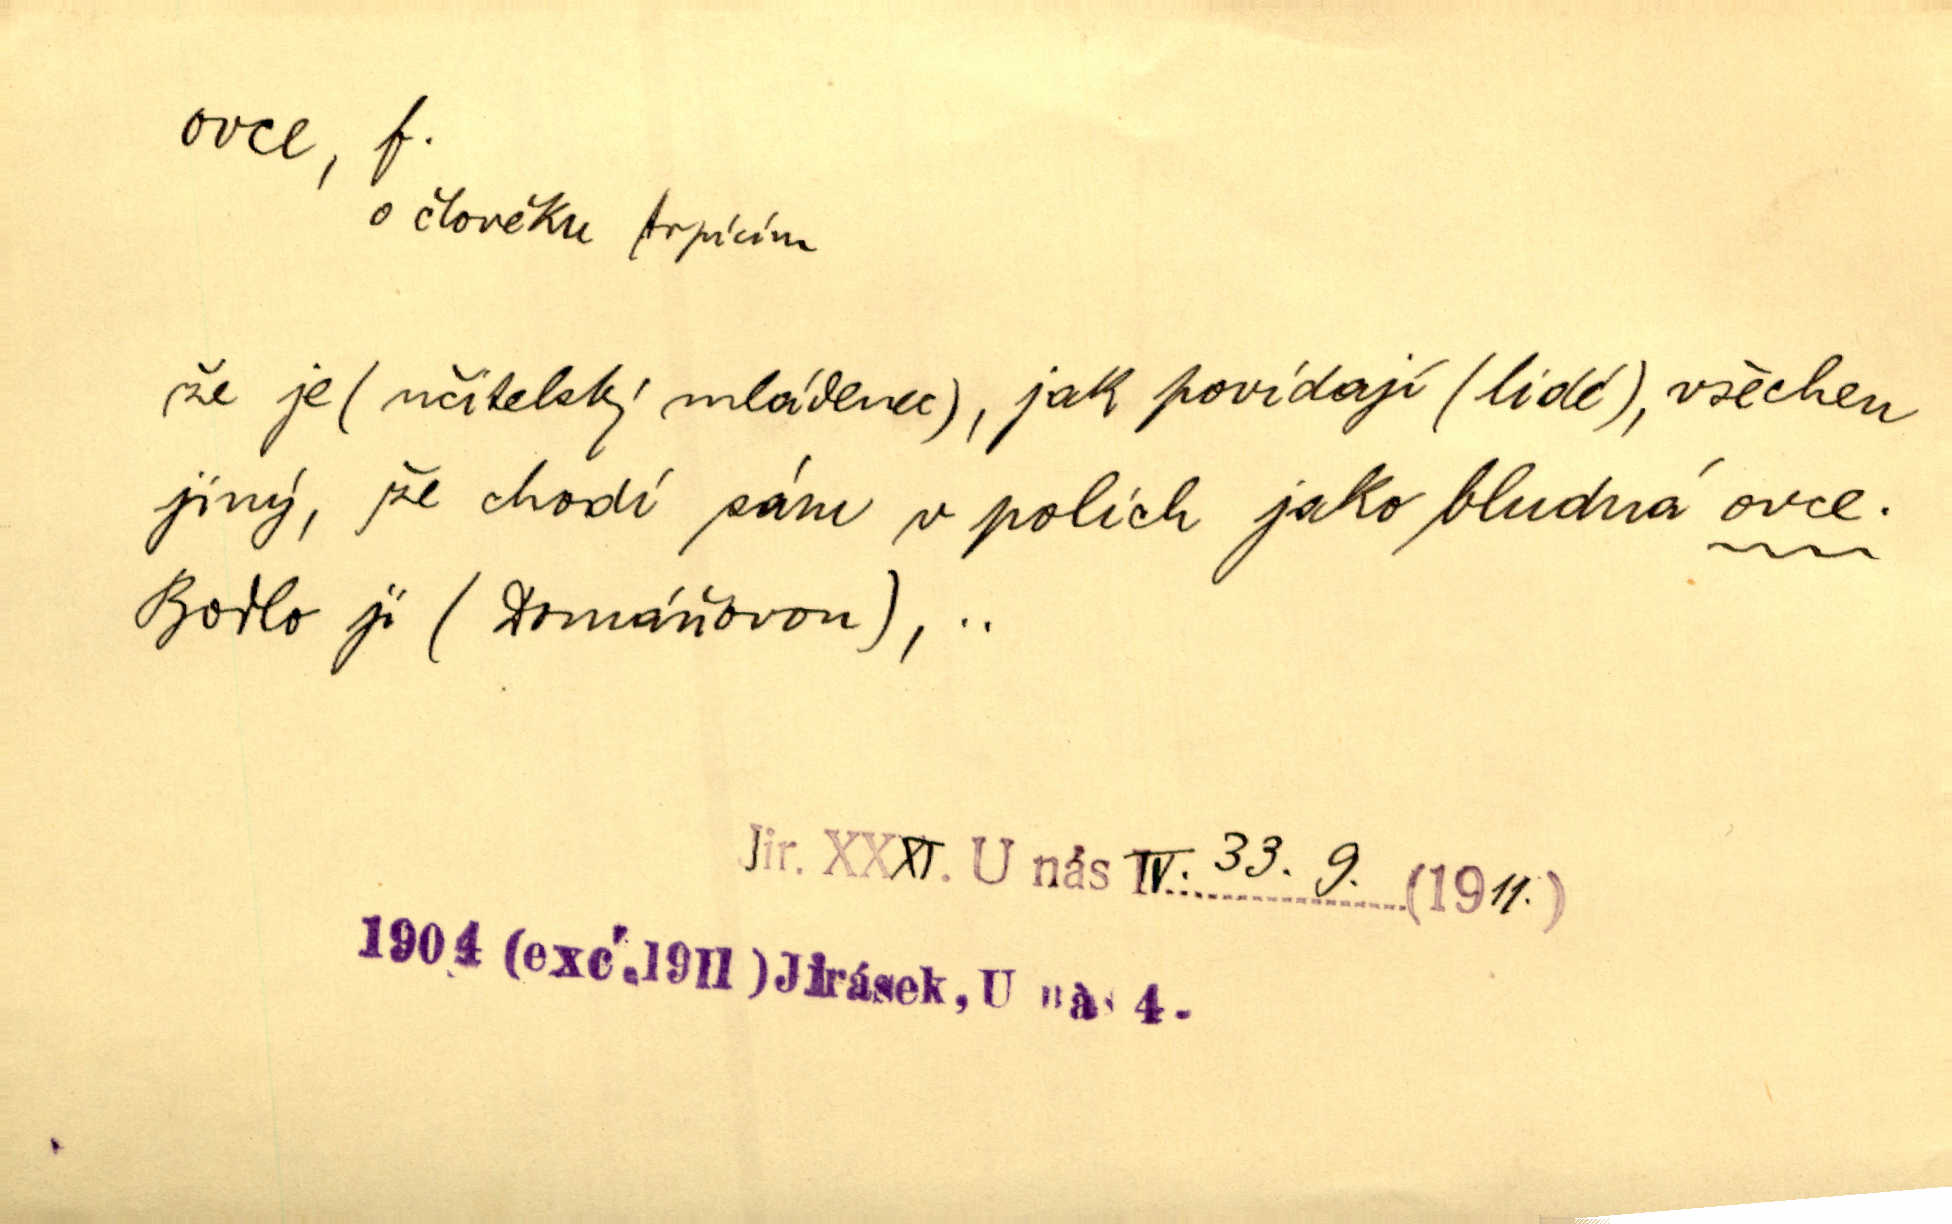 ovce, f.
o člověku trpícím
že je (učitelský mládenec), jak povídají (lidé), všechen
jiný, že chodí sám v polích jako bludná ovce.
Bodlo ji (Domáňovou), ..
Jir. XXXI. U nás IV. 33. 9. (1911.)
1904 (exc. 1911) Jirásek, U nás 4.